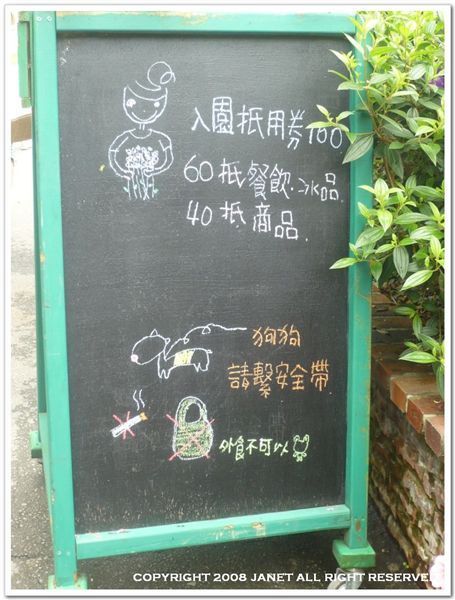 入園抵用券100
60抵餐飲.冰品
40抵商品.
狗狗
請繫安全帶
外食不可以
COPYRIGHT 2008 JANET ALL RIGHT RESERVED